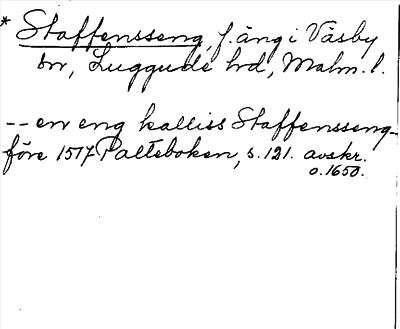 * Staffensseng, f. äng i Väsby
sn, Luggude hd, Malm. l.
-- en eng kalliss Staffensseng -
före 1517 Palteboken, s. 121. avskr.
o. 1650.